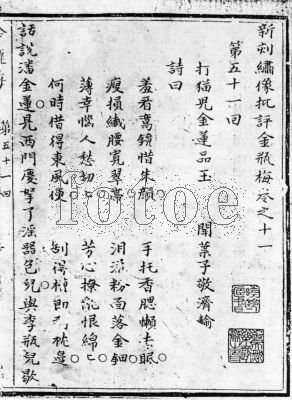 新刻繡像批評金瓶梅卷之十一
第五十一回
打猫兒金蓮品玉　鬪葉子敬濟輸
詩曰
羞看鸞鏡惜朱顏　手托香腮懶去眠
瘦損纖腰寬翠帶　淚流粉面落金鈿
薄幸惱人愁切〻　芳心撩亂恨綿〻
何時借得東風便　刮得檀郎到枕邊
話說潘金蓮見西門慶拏了淫器包兒與李瓶兒歇
第五十一回
fotoe